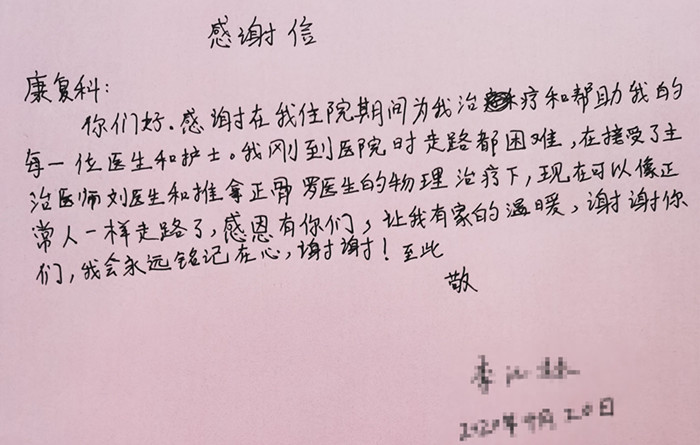 感谢信
康复科：
你们好．感谢在我住院期间为我治疗和帮助我的
每一位医生和护士。我刚到医院时走路都困难，在接受了主
治医师刘医生和推拿正骨罗医生的物理治疗下，现在可以像正
常人一样走路了，感恩有你们，让我有家的温暖，谢谢你
们，我会永远铭记在心，谢谢！至此
敬
20日